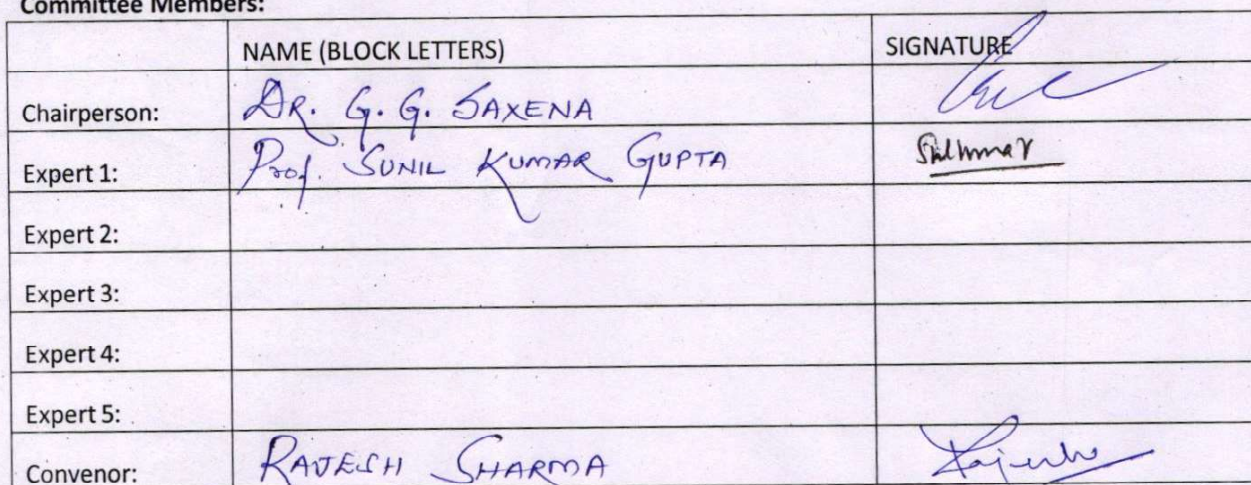 Committee Members:
NAME (BLOCK LETTERS) SIGNATURE
Chairperson: DR. G. G. SAXENA
Expert 1: Prof. SUNIL KUMAR GUPTA
Expert 2:
Expert 3:
Expert 4:
Expert 5:
Convenor: RAJESH SHARMA